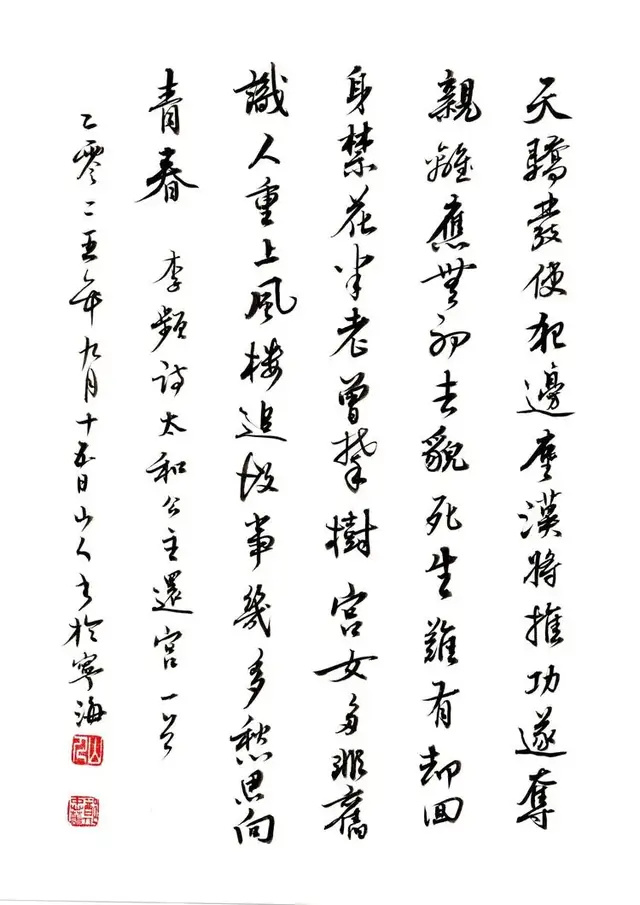 天驕發使犯邊塵漢將推功遂奪
親離應無初去貌死生難有却回
身禁花半老曾攀樹宮女多非舊
識人重上風楼追故事幾多愁思向
青春 李頻詩太和公主還宮一首
二零二五年九月十五日山人书於寧海